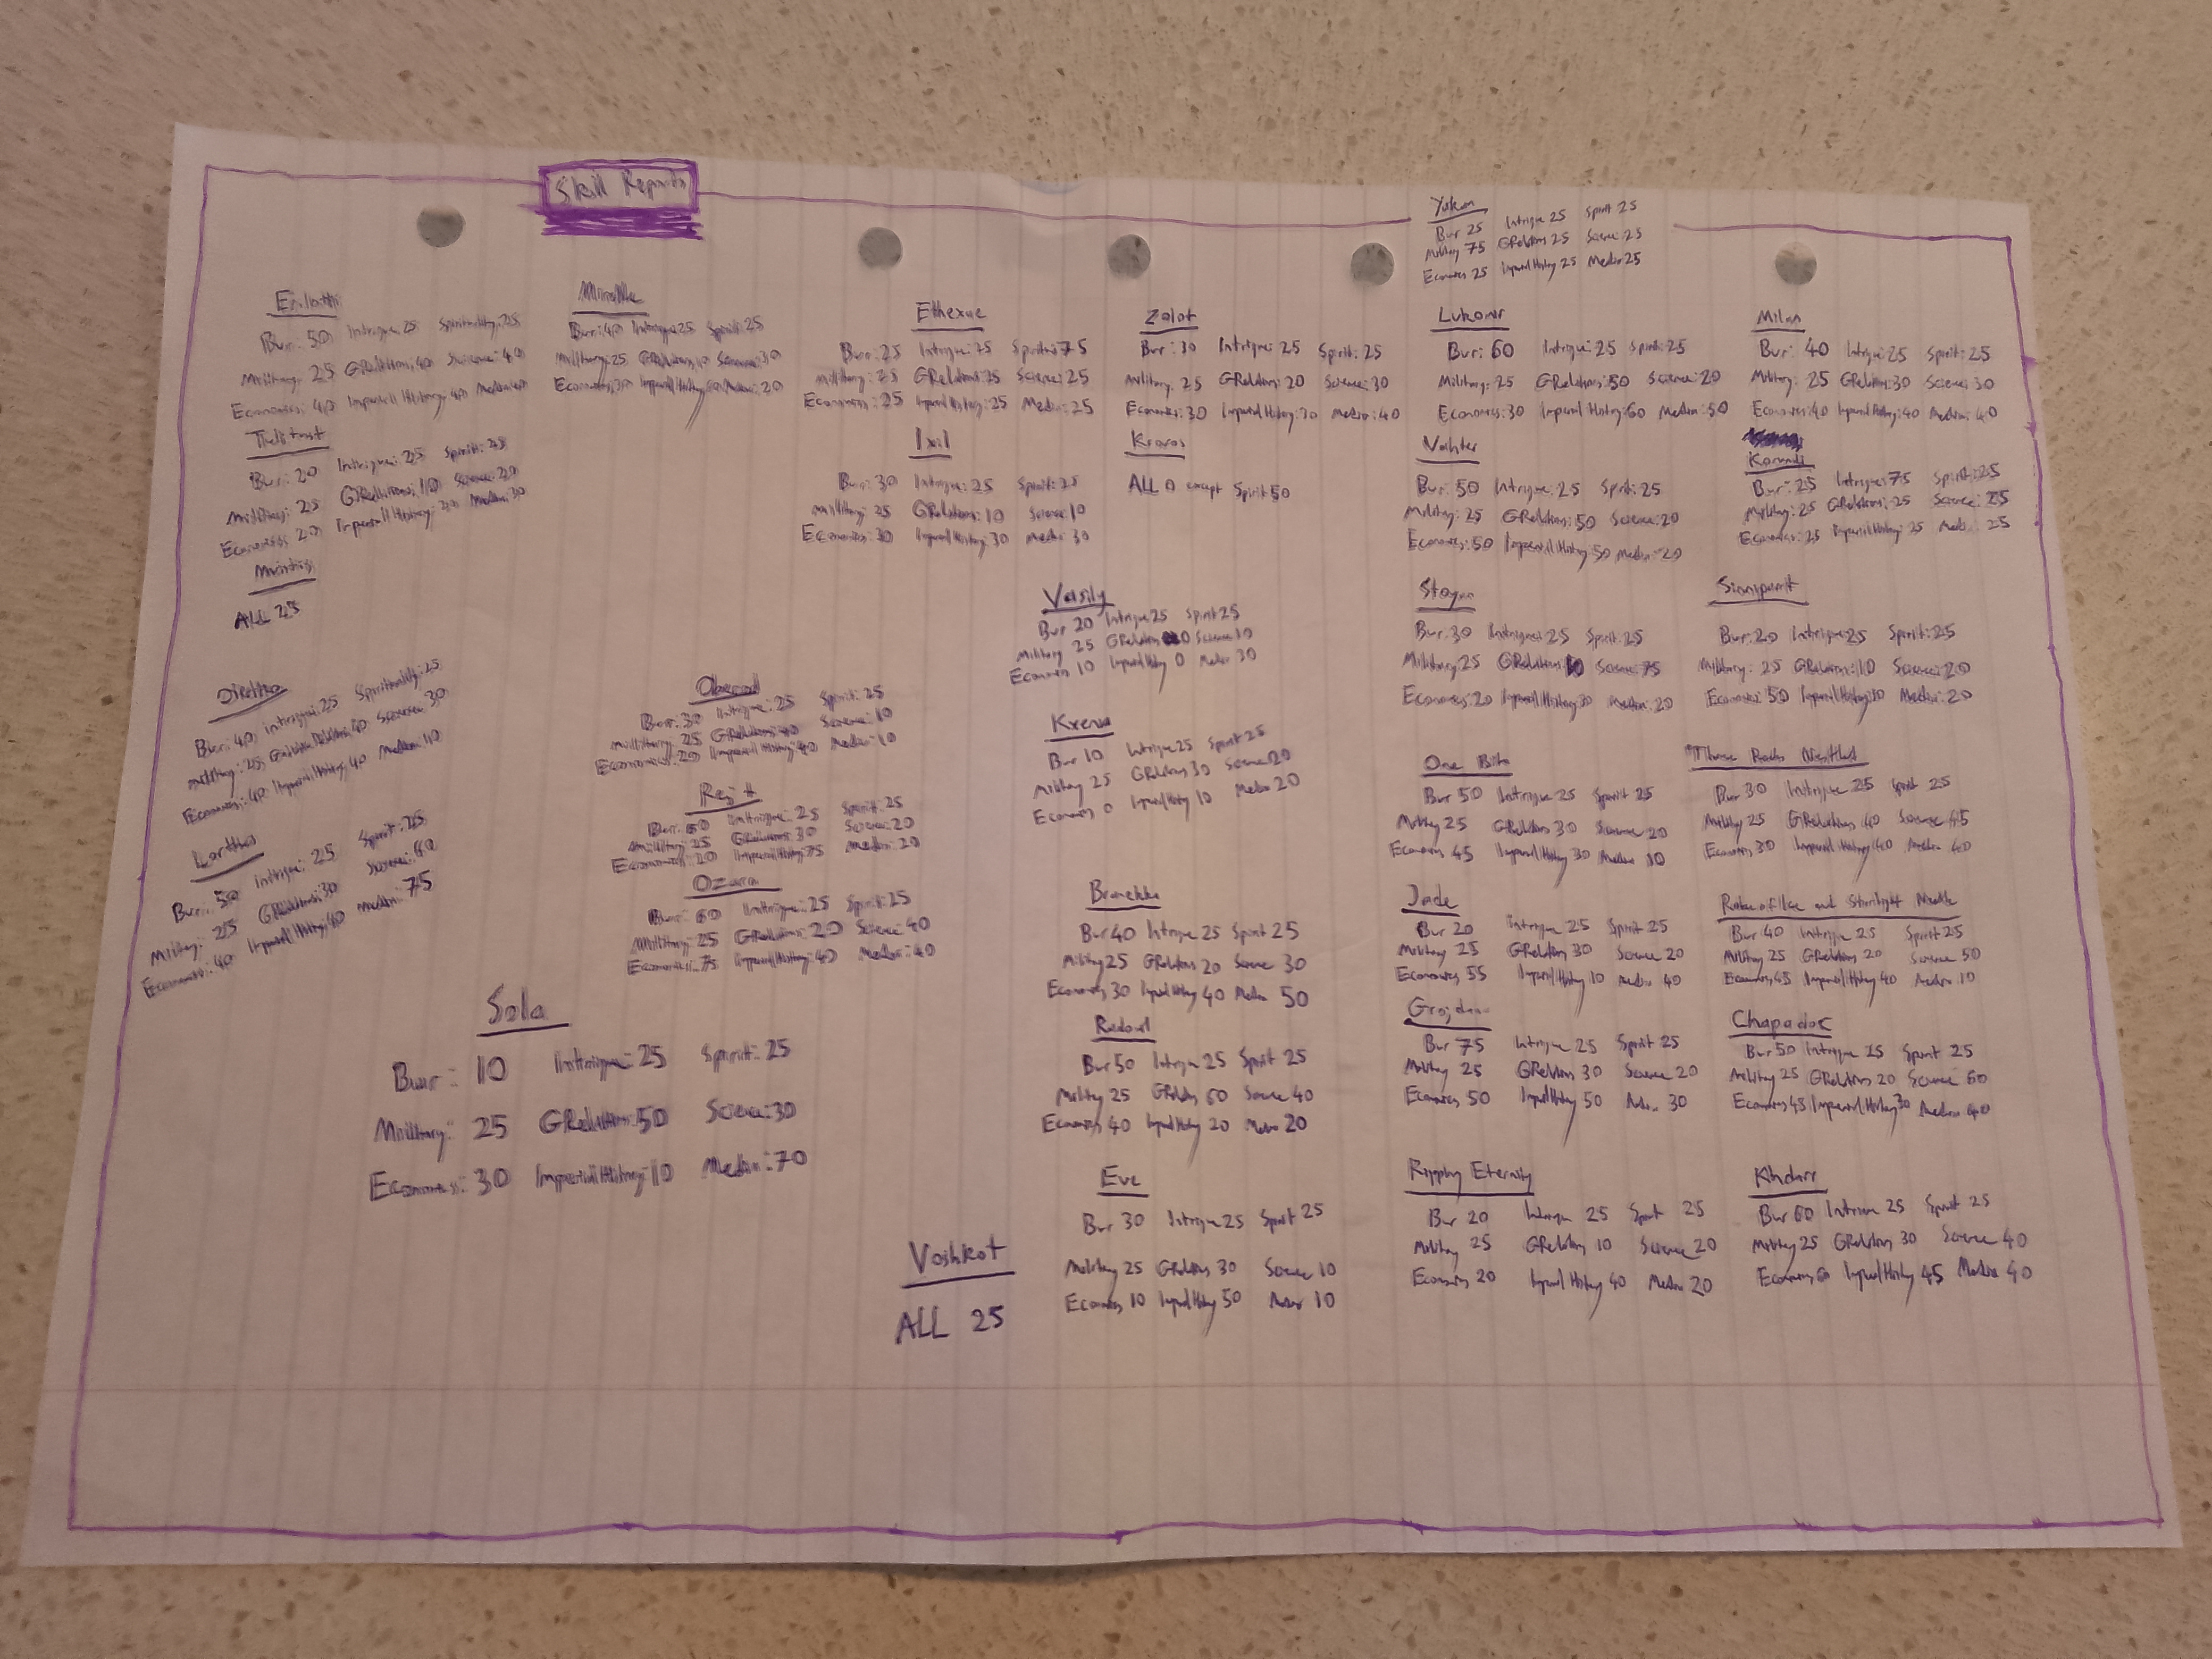 Skill Reports
Yukon
Bur 25 Intrigue 25 Spirit 25
Military 75 GRelations 25 Science 25
Economics 25 Imperial History 25 Medicin 25
Bur: 50 Intrigue: 25 Spirituality: 25
Military: 25 GRelations: 40 Science: 40
Economics: 40 Imperial History: 40
Bur: 40 Intrigue: 25 Spirit: 25
Military: 25 GRelations: Science: 30
Economics: 30 Imperial History: 20
Ethexue
Bur: 25 Intrigue: 25 Spirit: 75
Military: 25 GRelations: 25 Science: 25
Economics: 25 Imperial History: 25 Medicin: 25
Zolot
Bur: 30 Intrigue: 25 Spirit: 25
Military: 25 GRelations: 20 Science: 30
Economics: 30 Imperial History: 30 Medicin: 40
Lukomir
Bur: 60 Intrigue: 25 Spirit: 25
Military: 25 GRelations: 50 Science: 20
Economics: 30 Imperial History: 60 Medicin: 50
Milan
Bur: 40 Intrigue: 25 Spirit: 25
Military: 25 GRelations: 30 Science: 30
Economics: 40 Imperial History: 40 Medicin: 40
Bur: 20 Intrigue: 25 Spirit: 25
Military: 25 GRelations: 10 Science: 20
Economics: 20 Imperial History: Medicin: 30
ALL 25
Ixil
Bur: 30 Intrigue: 25 Spirit: 25
Military: 25 GRelations: 10 Science: 10
Economics: 30 Imperial History: 30 Medicin: 30
ALL 0 except Spirit 50
Bur: 50 Intrigue: 25 Spirit: 25
Military: 25 GRelations: 50 Science: 20
Economics: 50 Imperial History: 50 Medicin: 20
Bur: 25 Intrigue: 75 Spirit: 25
Military: 25 GRelations: 25 Science: 25
Economics: 25 Imperial History: 25 Medicin: 25
Vasily
Bur 20 Intrigue 25 Spirit 25
Military 25 GRelations 0 Science 10
Economics 10 Imperial History 0 Medicin 30
Bur: 30 Intrigue: 25 Spirit: 25
Military: 25 GRelations 10 Science: 75
Economics: 20 Imperial History: 30 Medicin: 20
Bur: 20 Intrigue: 25 Spirit: 25
Military: 25 GRelations: 10 Science: 20
Economics: 50 Imperial History: Medicin: 20
Bur: 40 Intrigue: 25 Spirituality: 25
Military: 25 Relations: 40 Science: 30
Economics: 40 Imperial History: 40 Medicin: 10
Bur: 30 Intrigue: 25 Spirit: 25
Military: 25 GRelations: Science: 10
Economics: 20 Imperial History: 40 Medicin: 10
Bur 10 Intrigue 25 Spirit 25
Military 25 GRelations 30 Science 20
Economics 0 Imperial History 10 Medicin 20
Bur 50 Intrigue 25 Spirit 25
Military 25 GRelations 30 Science 20
Economics 45 Imperial History 30 Medicin 10
Bur 30 Intrigue 25 Spirit 25
Military 25 GRelations 40 Science
Economics 30 Imperial History 40 Medicin 40
Bur: 50 Intrigue: 25 Spirit: 25
Military: 25 GRelations: 30 Science:
Economics: 40 Imperial History: 40 Medicin: 75
Bur: Intrigue: 25 Spirit: 25
Military: 25 GRelations: 30 Science: 20
Economics: 20 Imperial History: 75 Medicin: 20
Ozara
Bur: 60 Intrigue: 25 Spirit: 25
Military: 25 GRelations: 20 Science: 40
Economics: 75 Imperial History: 40 Medicin: 40
Bur 40 Intrigue 25 Spirit 25
Military 25 GRelations 20 Science 30
Economics 30 Imperial History 40 Medicin 50
Jade
Bur 20 Intrigue 25 Spirit 25
Military 25 GRelations 30 Science 20
Economics 55 Imperial History 10 Medicin 40
Bur 40 Intrigue 25 Spirit 25
Military 25 GRelations 20 Science 50
Economics 45 Imperial History 40 Medicin 10
Sola
Bur: 10 Intrigue: 25 Spirit: 25
Military: 25 GRelations: 50 Science: 30
Economics: 30 Imperial History: 10 Medicin: 70
Bur 50 Intrigue 25 Spirit 25
Military 25 GRelations 60 Science 40
Economics 40 Imperial History 20 Medicin 20
Bur 75 Intrigue 25 Spirit 25
Military 25 GRelations 30 Science 20
Economics 50 Imperial History 50 Medicin 30
Chapadoc
Bur 50 Intrigue 25 Spirit 25
Military 25 GRelations 20 Science 60
Economics 45 Imperial History 30 Medicin 40
Voshkot
ALL 25
Eve
Bur 30 Intrigue 25 Spirit 25
Military 25 GRelations 30 Science 10
Economics 10 Imperial History 50 Medicin 10
Eternity
Bur 20 Intrigue 25 Spirit 25
Military 25 GRelations 10 Science 20
Economics 20 Imperial History 40 Medicin 20
Khdarr
Bur 60 Intrigue 25 Spirit 25
Military 25 GRelations 30 Science 40
Economics Imperial History 45 Medicin 40